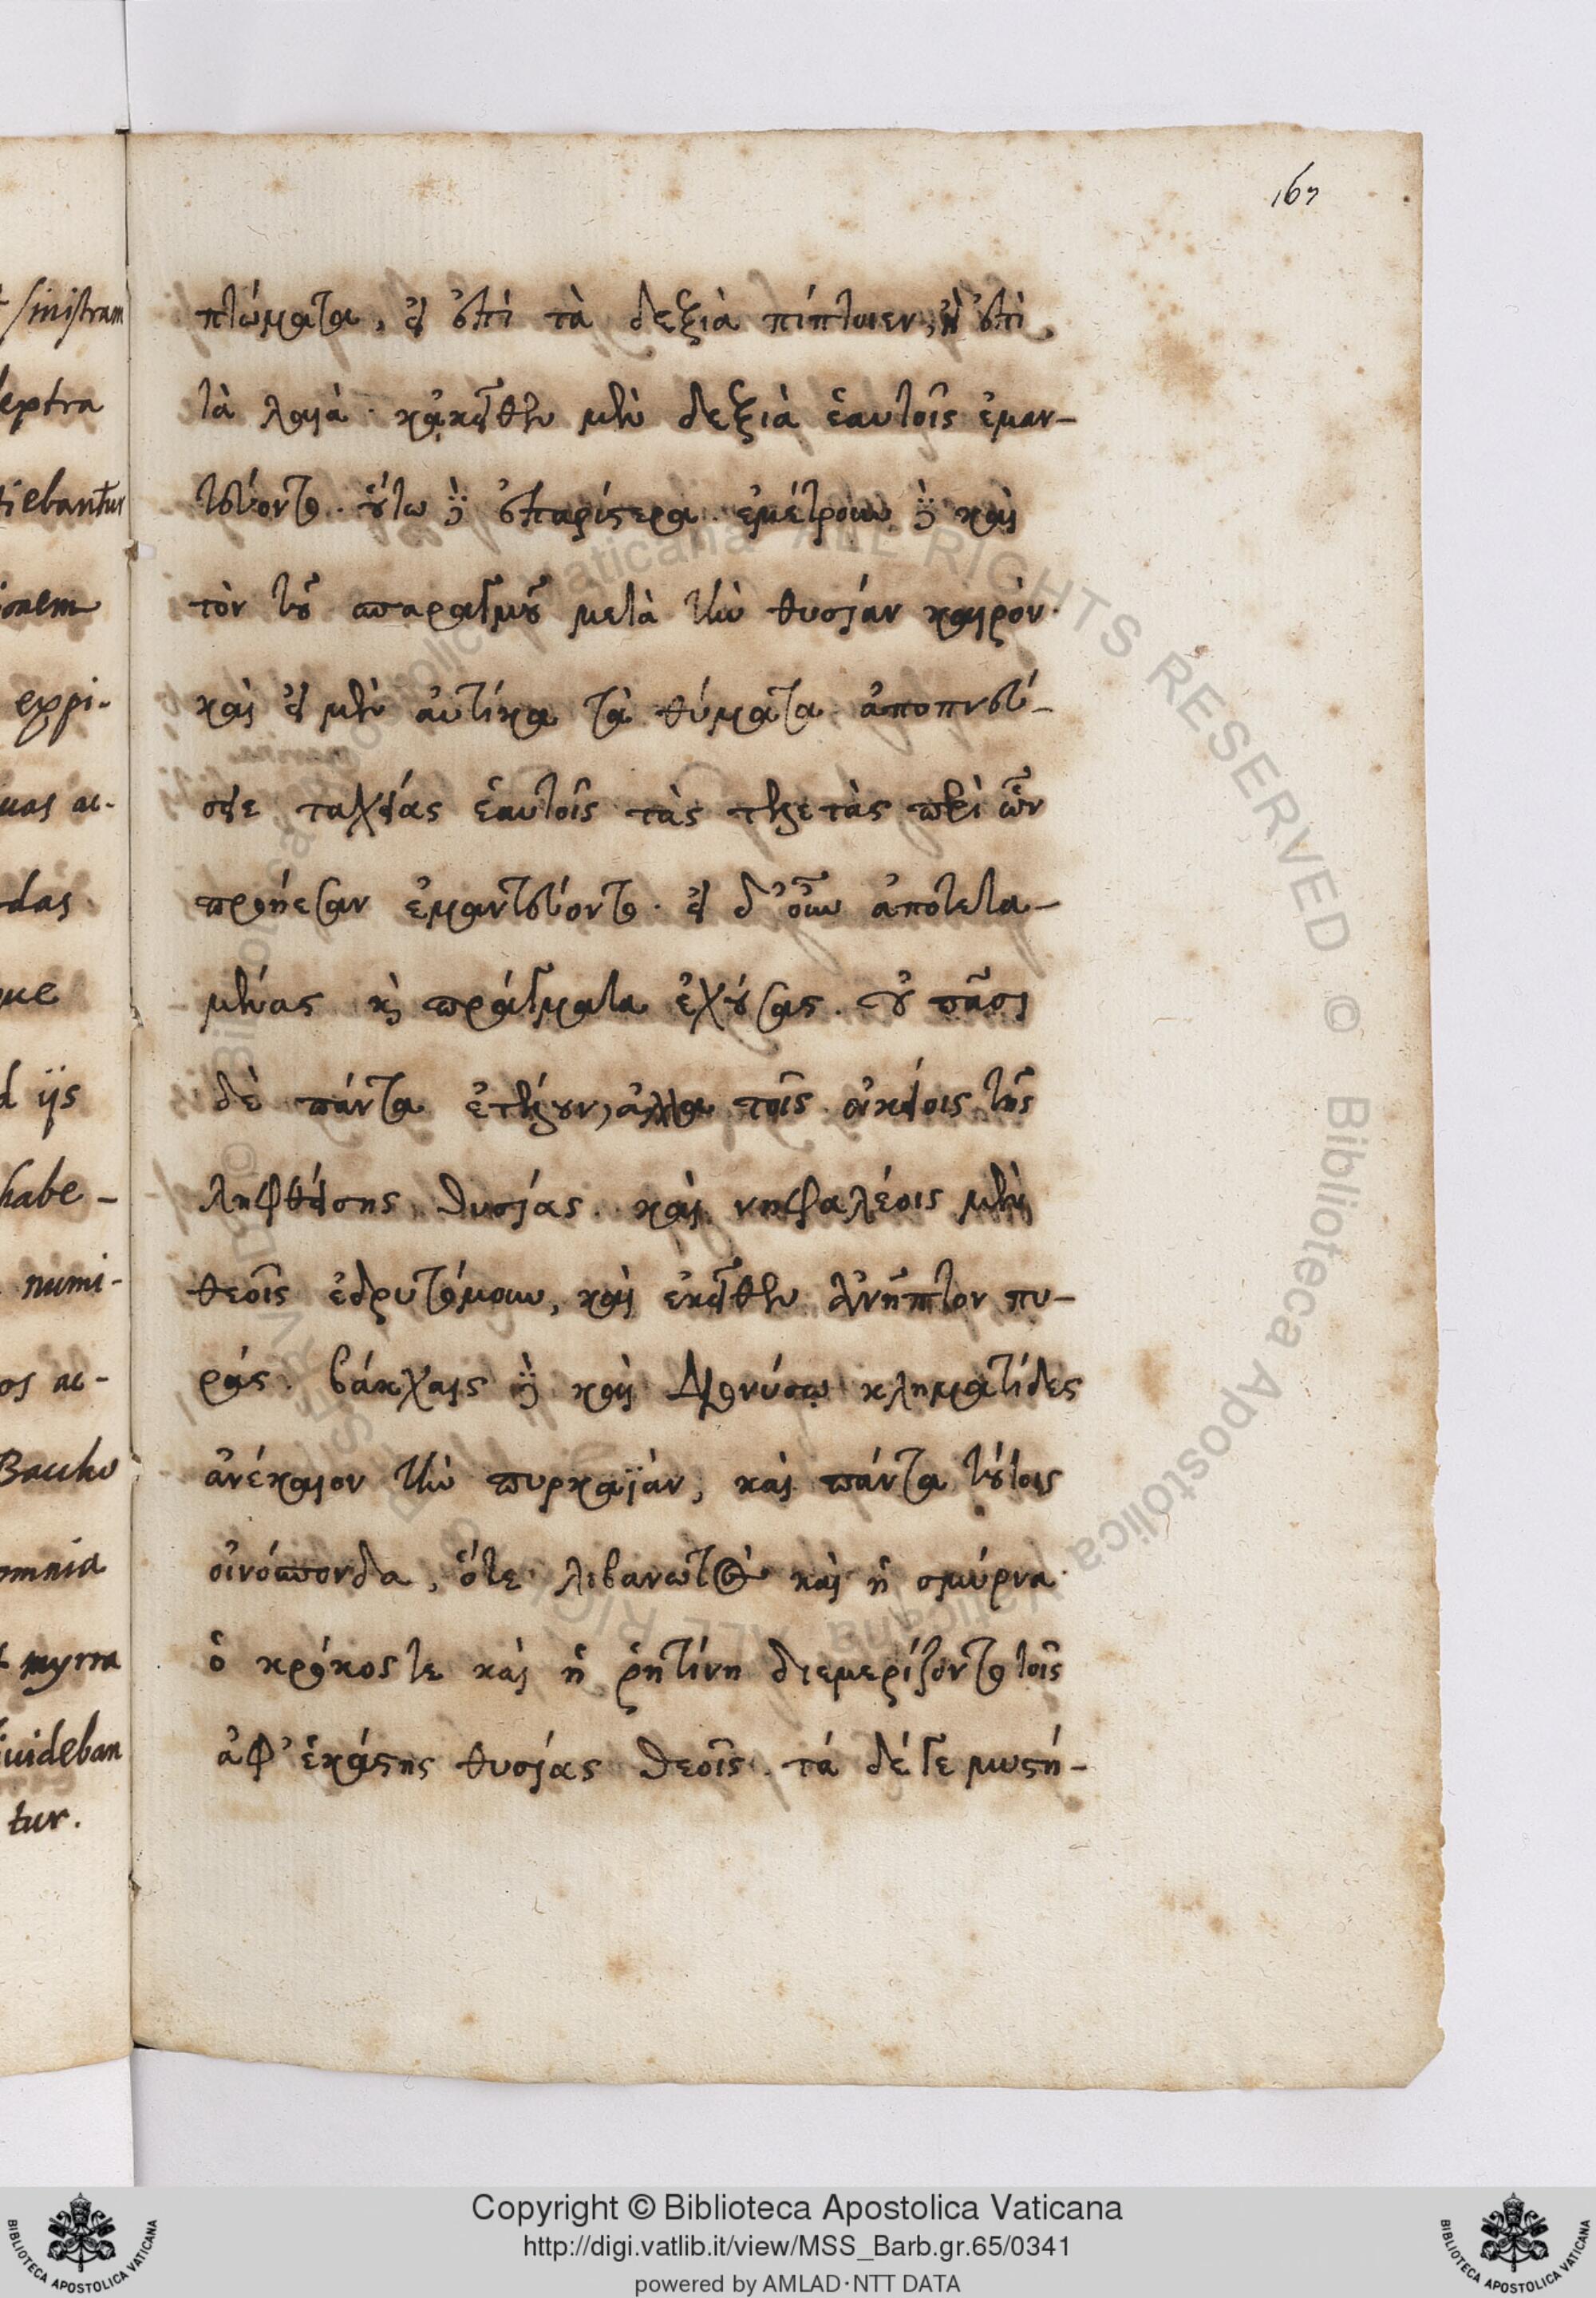 167
sinistram
dextra
tiebantur
ionem
expi-
uas ac-
das
que
d ijs
habe-
numi-
os ac-
Baccho
omnia
t myrra
iuideban
tur.
πτώματα, εἰ ἐπὶ τὰ δεξιὰ πίπτοιεν, ἢ ἐπὶ
τὰ λαιὰ. κἀκεῖθεν μὲν δεξιὰ ἑαυτοῖς ἐμαν-
τεύοντο. οὕτω δὲ ἐπαρίστερα. ἐμέτρουν δὲ καὶ
τὸν τοῦ σπαραγμοῦ μετὰ τὴν θυσίαν καιρὸν.
καὶ εἰ μὲν αὐτίκα τὰ θύματα ἀποπνεύ-
σειε ταχείας ἑαυτοῖς τὰς τελετὰς περὶ ὧν
προήεσαν ἐμαντεύοντο. εἰ δ' οὖν ἀποτετα-
μένας καὶ πράγματα ἐχούσας. οὐ πᾶσι
δὲ πάντα ἐτέλουν, ἀλλα τοῖς οἰκείοις τῆς
ληφθείσης θυσίας. καὶ νηφαλέοις μὲν
θεοῖς ἐδρυτόμουν, καὶ ἐκεῖθεν ἀνῆπτον πυ-
ράς. βάκχαις δὲ καὶ Διονύσῳ κληματίδες
ἀνέκαιον τὴν πυρκαϊὰν, καὶ πάντα τούτοις
οἰνόσπονδα, ὅτε λιβανωτὸς καὶ ἡ σμύρνα.
ὁ κρόκος τε καὶ ἡ ῥητίνη διεμερίζοντο τοῖς
ἀφ' ἑκάστης θυσίας θεοῖς. τά δέ γε μυστή-
Copyright © Biblioteca Apostolica Vaticana
http://digi.vatlib.it/view/MSS_Barb.gr.65/0341
powered by AMLAD·NTT DATA
BIBLIOTECA APOSTOLICA VATICANA
BIBLIOTECA APOSTOLICA VATICANA